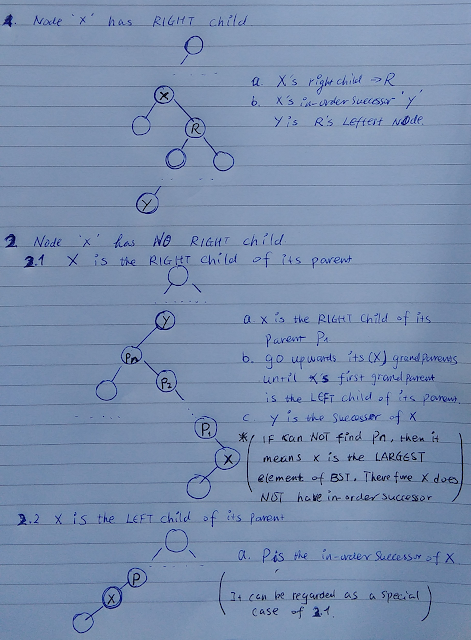 1. Node 'X' has RIGHT child
X
R
Y
a X's right child → R
b. X's in-order successor 'Y'
Y is R's LEFTEST NODE.
2 Node 'X' has NO RIGHT child
2.1 X is the RIGHT child of its parent
Y
Pn
P2
P1
X
a. X is the RIGHT child of its
parent P1
b. go upwards its (X) grandparents
until X's first grandparent
is the LEFT child of its parent.
c. Y is the successor of X
* ( IF can NOT find Pn, then it
means X is the LARGEST
element of BST. Therefore X does
NOT have in-order successor )
2.2 X is the LEFT child of its parent
P
X
a. P is the in-order successor of X
( It can be regarded as a special
case of 2.1. )